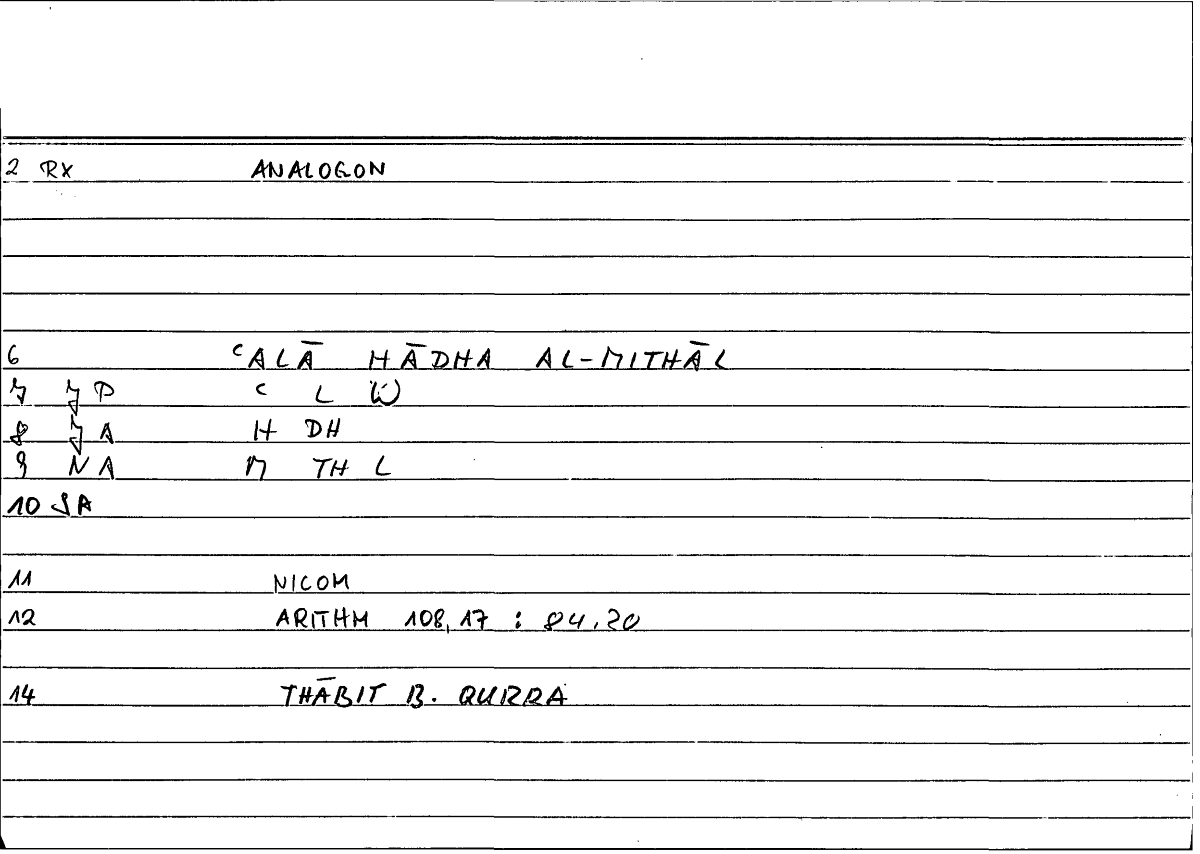 2 RX ANALOGON
6 ʿALĀ HĀDHA AL-MITHĀL
7 JP ʿ L W
8 JA H DH
9 NA M TH L
10 SA
11 NICOM
12 ARITHM 108,17 : 84.20
14 THĀBIT B. QURRA